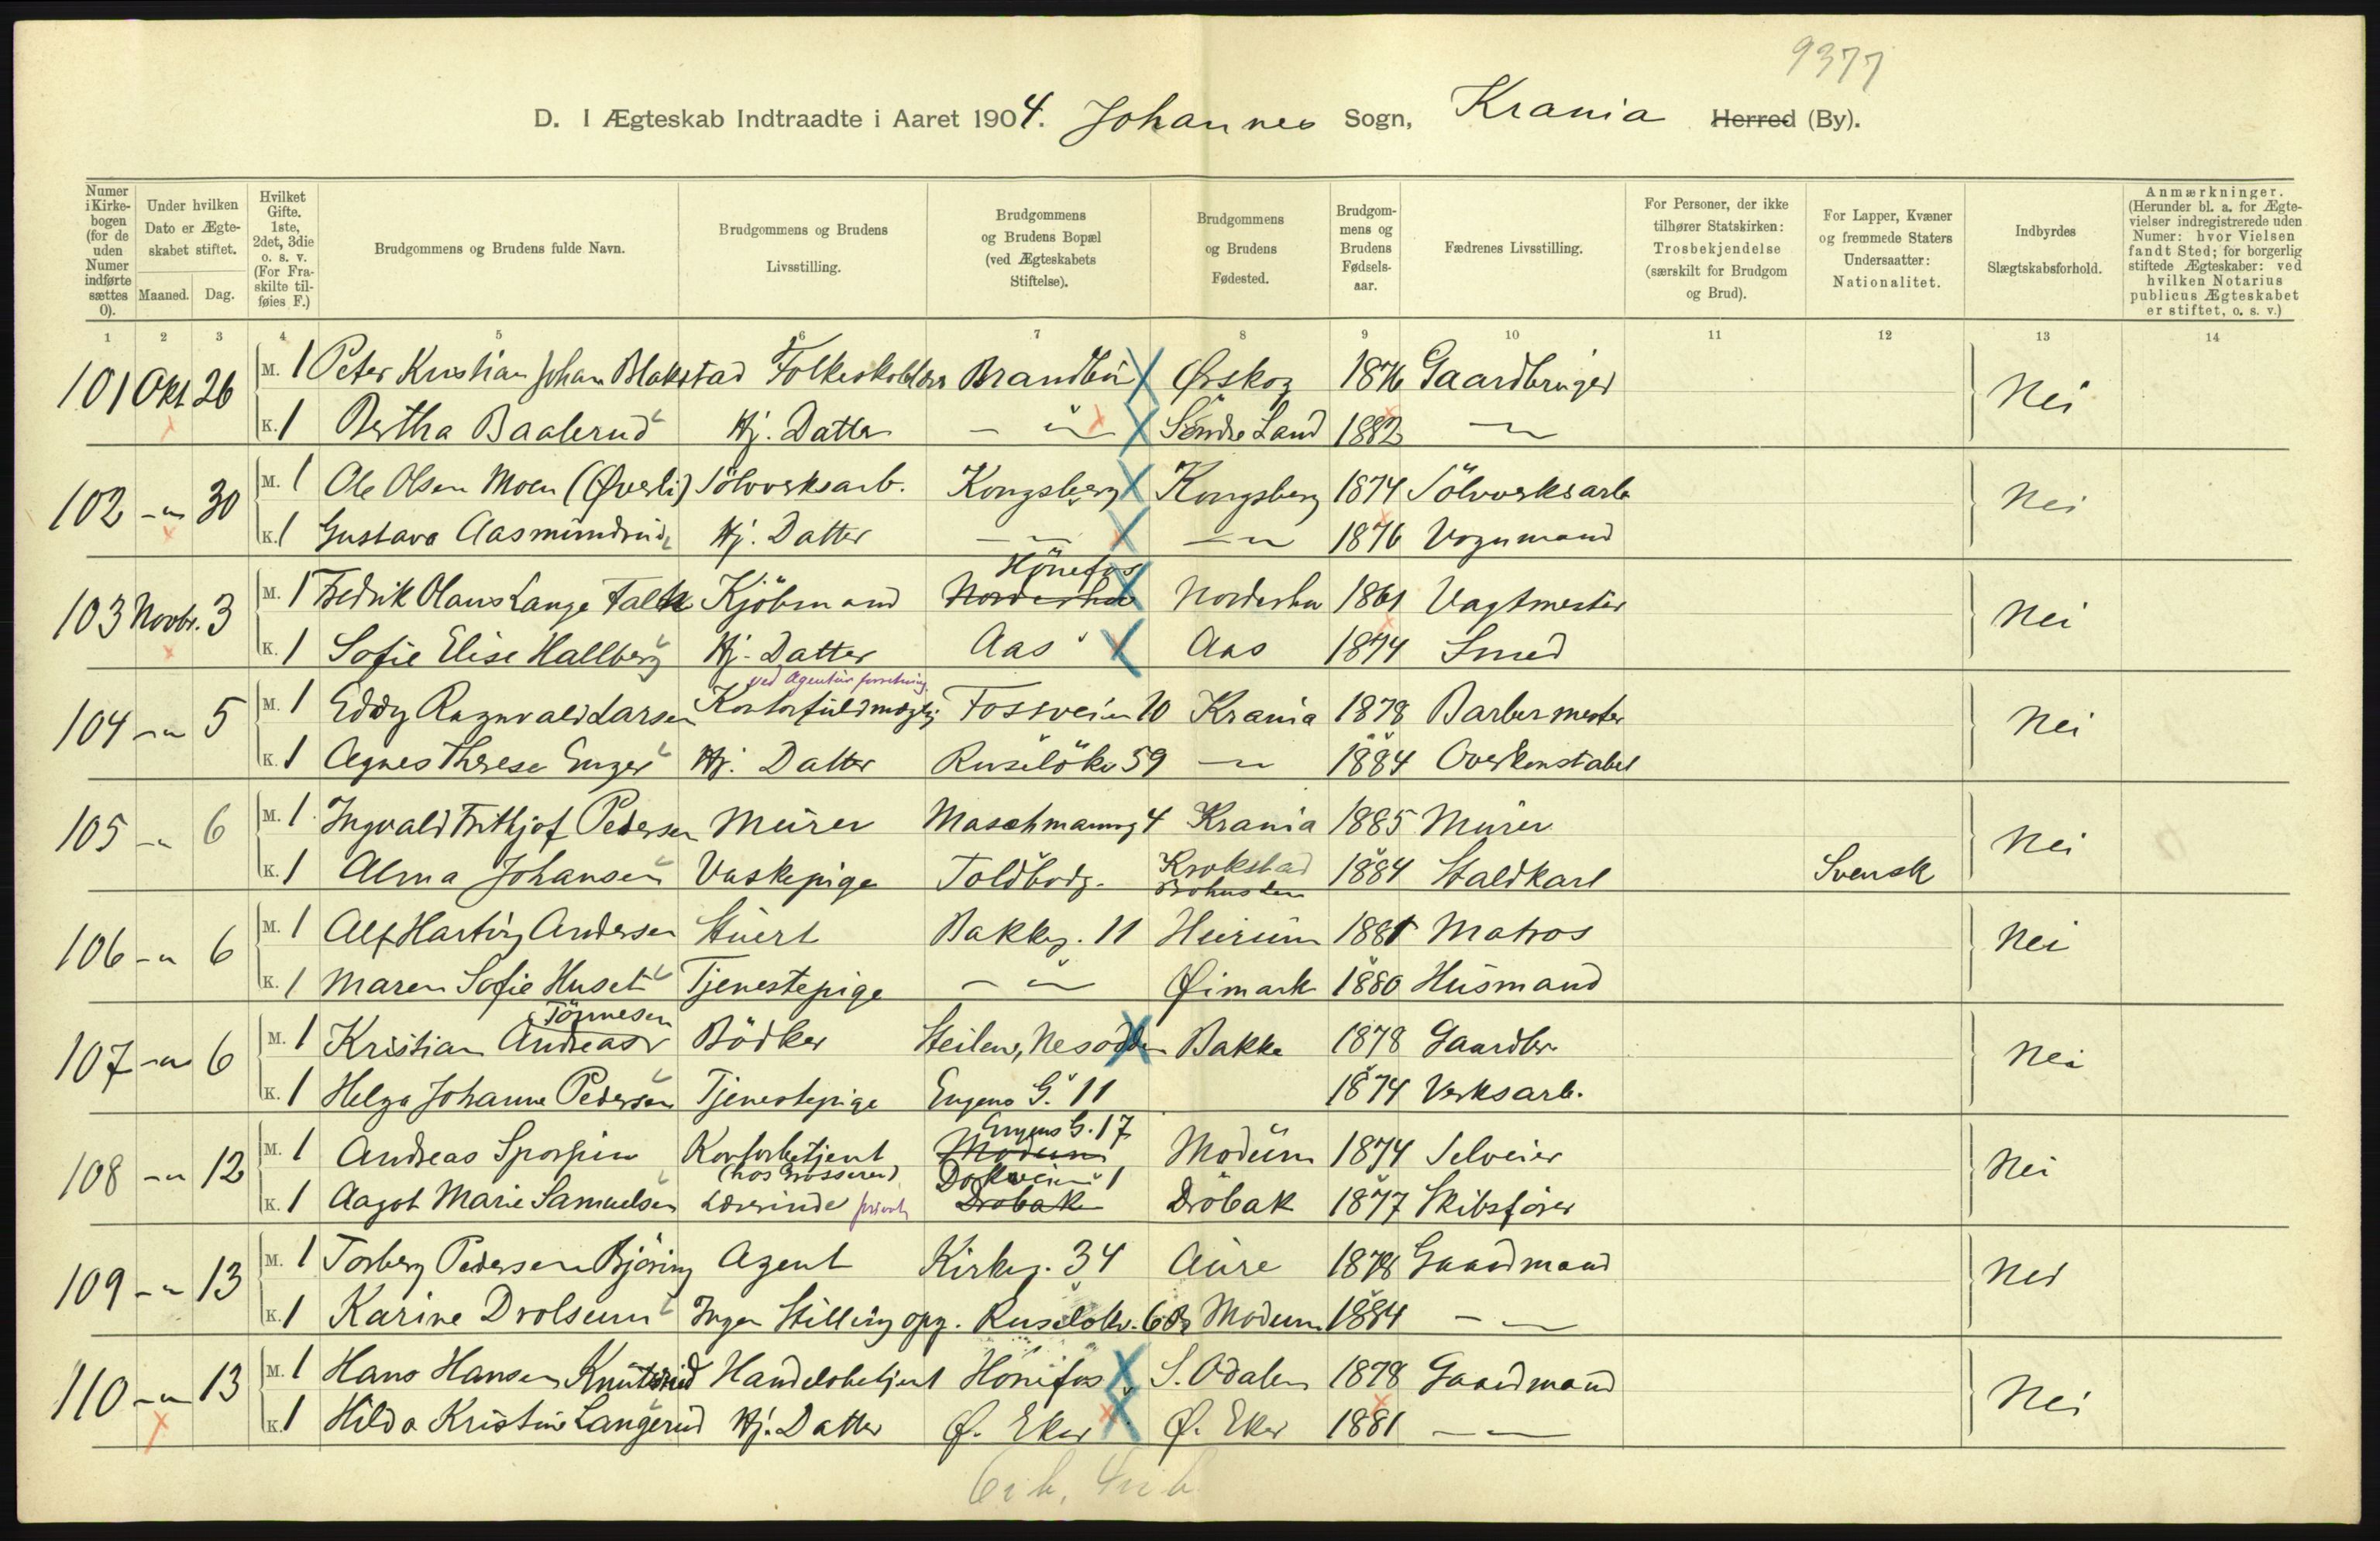 9377
D. I Ægteskab Indtraadte i Aaret 1904. Johannes Sogn, Krania Herred (By).
Numer i Kirke-bogen (for de uden Numer indførte sættes 0).
Under hvilken Dato er Ægte-skabet stiftet.
Maaned. Dag.
Hvilket Gifte. 1ste, 2det, 3die o. s. v. (For Fra-skilte til-føies F.)
Brudgommens og Brudens fulde Navn.
Brudgommens og Brudens Livsstilling.
Brudgommens og Brudens Bopæl (ved Ægteskabets Stiftelse).
Brudgommens og Brudens Fødested.
Brudgom-mens og Brudens Fødsels-aar.
Fædrenes Livsstilling.
For Personer, der ikke tilhører Statskirken: Trosbekjendelse (særskilt for Brudgom og Brud).
For Lapper, Kvæner og fremmede Staters Undersaatter: Nationalitet.
Indbyrdes Slægtskabsforhold.
Anmærkninger. (Herunder bl. a. for Ægte-vielser indregistrerede uden Numer: hvor Vielsen fandt Sted; for borgerlig stiftede Ægteskaber: ved hvilken Notarius publicus Ægteskabet er stiftet, o. s. v.)
1 2 3 4 5 6 7 8 9 10 11 12 13 14
101 Okt 26 M. 1 Peter Kristian Johan Blakstad Folkeskolelærer Brandbu Ørskog 1876 Gaardbruger Nei
K. 1 Bertha Baalerud Hj. Datter - " - Söndre Land 1882 - " -
102 - " - 30 M. 1 Ole Olsen Moen (Øverli) Sölvverksarb. Kongsberg Kongsberg 1874 Sölvverksarb Nei
K. 1 Gustava Aasmundrud Hj. Datter - " - - " - 1876 Vognmand
Hönefos
103 Novbr. 3 M. 1 Fredrik Olaus Lange Falck Kjöbmand Norderhov Norderhov 1861 Vagtmester Nei
K. 1 Sofie Elise Hallberg Hj. Datter Aas Aas 1874 Smed
ved Agentur forretning
104 - " - 5 M. 1 Eddy Ragnvald Larsen Kontorfuldmægtig Fossveien 10 Krania 1878 Barbermester Nei
K. 1 Agnes Therese Enger Hj. Datter Ruselökv 59 - " - 1884 Overkonstabel
105 - " - 6 M. 1 Ingvald Frithjof Pedersen Murer Maschmannsg 4 Krania 1885 Murer Nei
K. 1 Alma Johansen Vaskepige Toldbodg. Krokstad Bohuslen 1884 Staldkarl Svensk
106 - " - 6 M. 1 Alf Hartvig Andersen Stuert Bakkeg. 11 Hurum 1881 Matros Nei
K. 1 Maren Sofie Huset Tjenestepige - " - Øimark 1880 Husmand
Tönnesen
107 - " - 6 M. 1 Kristian Andreas Bödker Steilene, Nesodden Bakke 1878 Gaardbr. Nei
K. 1 Helga Johanne Pedersen Tjenestepige Eugens G. 11 1874 Verksarb.
Eugens G. 17
108 - " - 12 M. 1 Andreas Sporpin Kontorbetjent Modum Modum 1874 Selveier Nei
(hos Grosserer) Dokveien 1
K. 1 Aagot Marie Samuelsen Lærerinde privat Dröbak Dröbak 1877 Skibsförer
109 - " - 13 M. 1 Torberg Pedersen Björing Agent Kirkeg. 34 Aure 1878 Gaardmand Nei
K. 1 Karine Drolsum Ingen Stilling opg. Ruselökv. 6 Modum 1884 - " -
110 - " - 13 M. 1 Hans Hansen Knutsrud Handelsbetjent Hönefos S. Odalen 1878 Gaardmand Nei
K. 1 Hilda Kristine Langerud Hj. Datter Ø. Eker Ø. Eker 1881 - " -